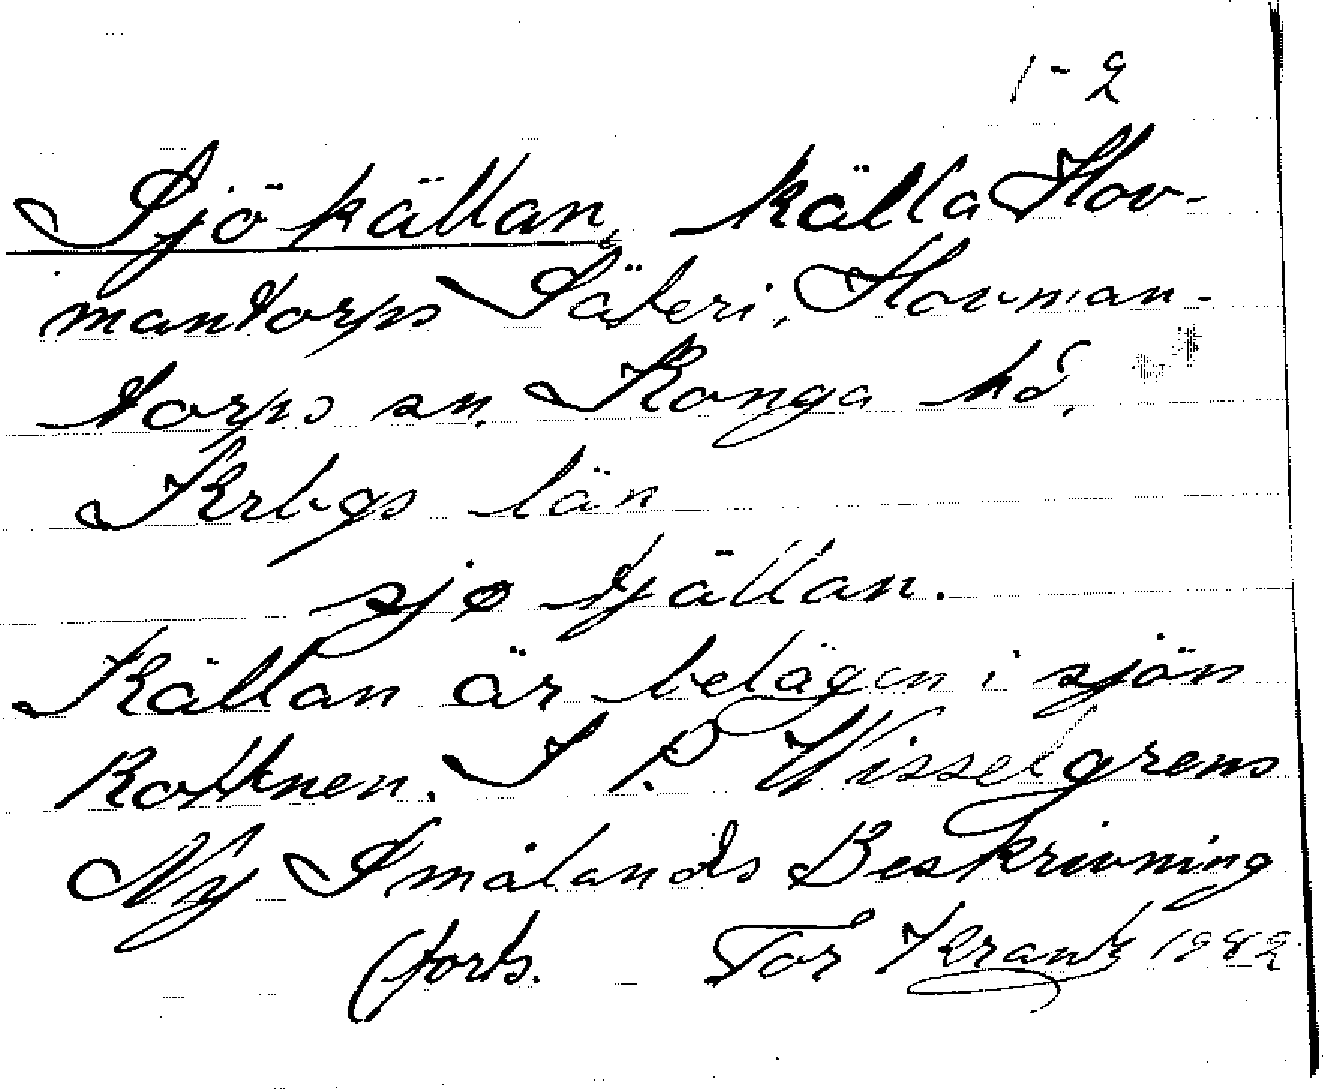 1-2
Sjökällan, källa Hov-
mantorps Säteri, Hovman-
torps sn. Konga hd,
Krbgs län
sjø tjällan.
Källan är belägen i sjön
Rottnen. I P. Wisselgrens
Ny Smålands Beskrivning
(forts. Tor Krantz 1942